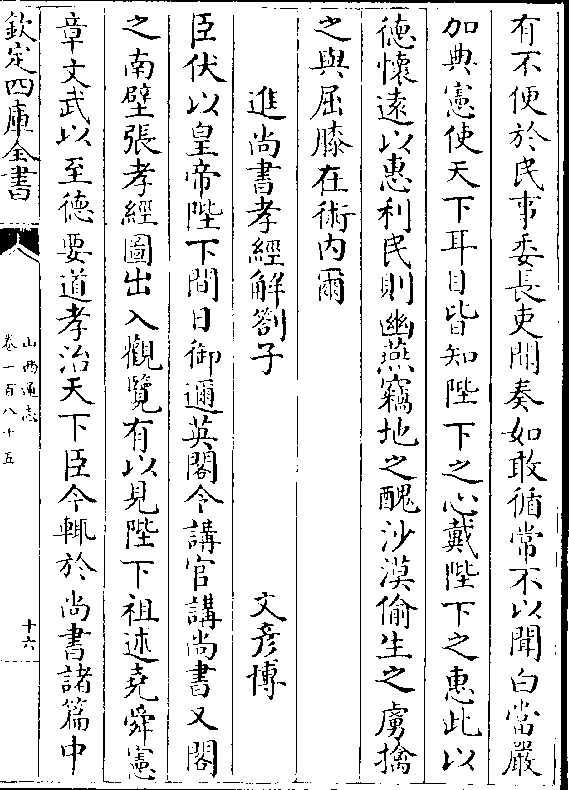 有不便於民事委長吏開奏如敢循常不以聞白當嚴
加典憲使天下耳目皆知陛下之心戴陛下之惠此以
徳懷逺以惠利民則幽燕竊地之醜沙漠偷生之虜擒
之與屈膝在術内爾
進尚書孝經解劄子 文彦博
臣伏以皇帝陛下間日御邇英閣令講官講尚書又閣
之南壁張孝經圖出入觀覽有以見陛下祖述堯舜憲
章文武以至徳要道孝治天下臣今輒於尚書諸篇中
欽定四庫全書
山西通志
卷一百八十五
十六